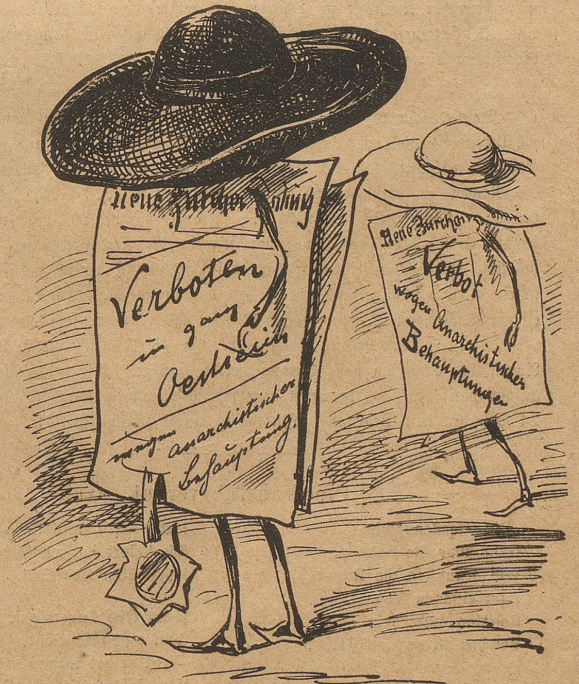 Neue Zürcher Zeitung
Verboten
in ganz
Oestreich
wegen anarchistischer
behauptung.
Neue Zürcher
Verbot
wegen Anarchistischer
Behauptungen